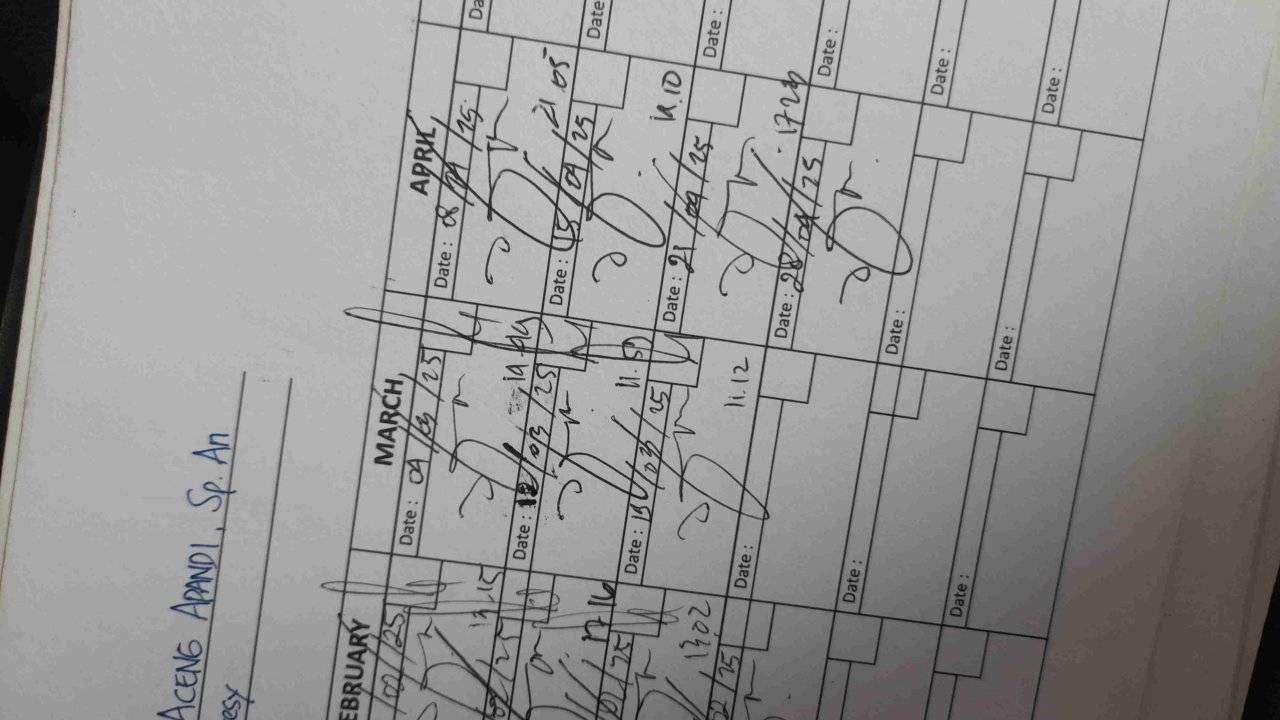 ACENG APANDI, Sp. An
esy
EBRUARY
/25
13.15
/25
17 16
/25
13.02
02/25
MARCH
Date : 04/03/25
Date : 12/03/25
11.50
Date : 19/03/25
11.12
Date :
Date :
Date :
APRIL
Date : 08/04/25
21.05
Date : 15/04/25
Date : 21/04/25
Date : 28/04/25
Date :
Date :
Da
Date
Date :
Date :
Date :
Date :